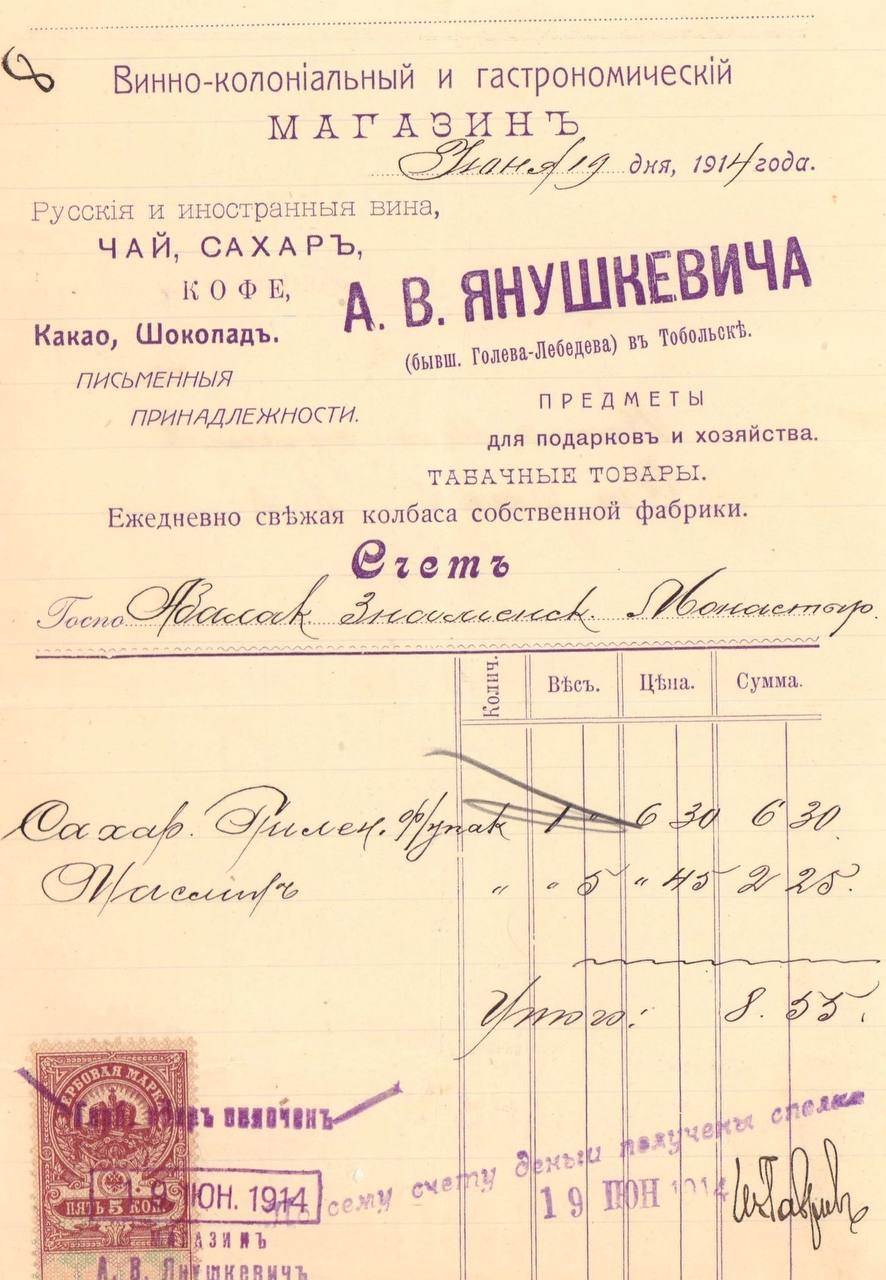 8
Винно-колоніальный и гастрономическій
МАГАЗИНЪ
Іюня 19 дня, 1914 года.
Русскія и иностранныя вина,
ЧАЙ, САХАРЪ,
КОФЕ,
Какао, Шоколадъ.
ПИСЬМЕННЫЯ
ПРИНАДЛЕЖНОСТИ.
А. В. ЯНУШКЕВИЧА
(бывш. Голева-Лебедева) въ Тобольскѣ.
ПРЕДМЕТЫ
для подарковъ и хозяйства.
ТАБАЧНЫЕ ТОВАРЫ.
Ежедневно свѣжая колбаса собственной фабрики.
Счетъ
Госпо Абалак Знаменск. Монастыр.
Колич. Вѣсъ. Цѣна. Сумма.
Сахар. 1 " 6 30 6 30
Маслинъ " " 5 " 45 2 25.
Итого: 8. 55.
ГЕРБОВАЯ МАРКА
ПЯТЬ 5 КОП.
оплочен
19 ИЮН. 1914
МАГАЗИНЪ
А. В. ЯНУШКЕВИЧЪ
По сему счету деньги получены
19 ІЮН 1914